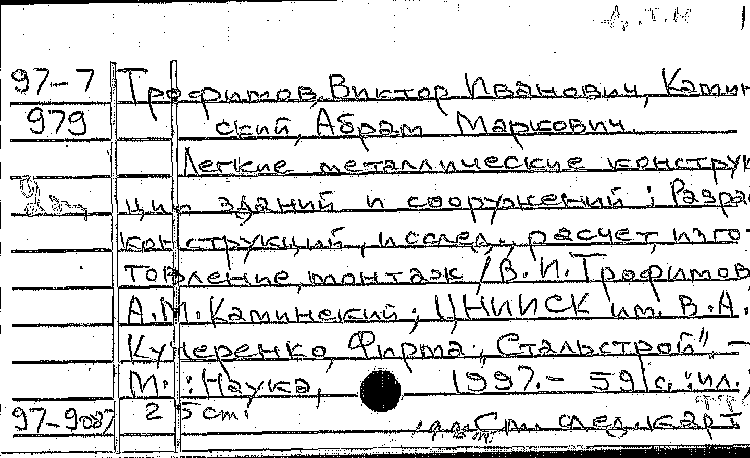 97-7 Трофимов, Виктор Иванович, Камин
979 ский, Абрам Маркович.
Легкие металлические конструк
ции зданий и сооружений : Разраб
конструкций, исслед., расчет, изго
товление, монтаж / В. И. Трофимов,
А. М. Каминский ; ЦНИИСК им. В. А.
Кучеренко, Фирма „Стальстрой". —
М. : Наука, 1997. — 591 с. : ил. ;
97-9087 25 cm.
См. след. карт